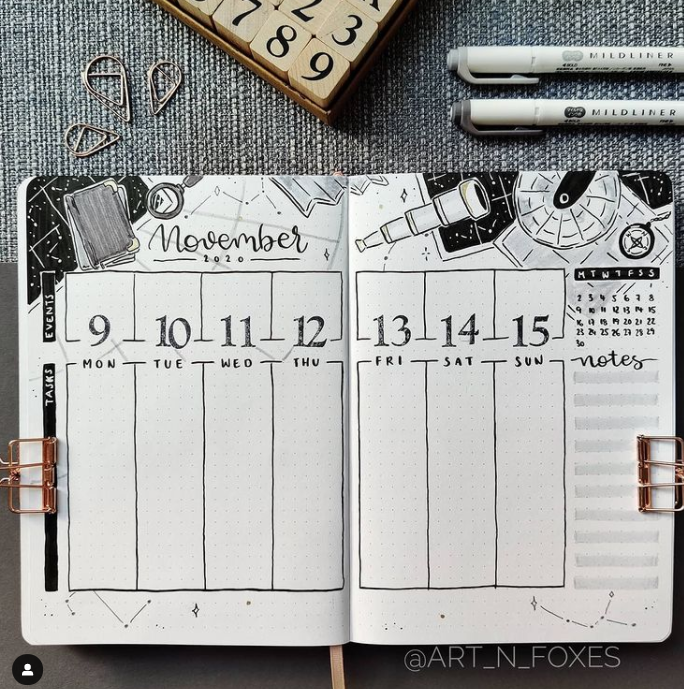 2 X
7 8 3
9
MILDLINER
MILDLINER
November
2020
EVENTS
9 10 11 12 13 14 15
MON TUE WED THU FRI SAT SUN
TASKS
M T W T F S S
1
2 3 4 5 6 7 8
9 10 11 12 13 14 15
16 17 18 19 20 21 22
23 24 25 26 27 28 29
30
notes
@ART_N_FOXES